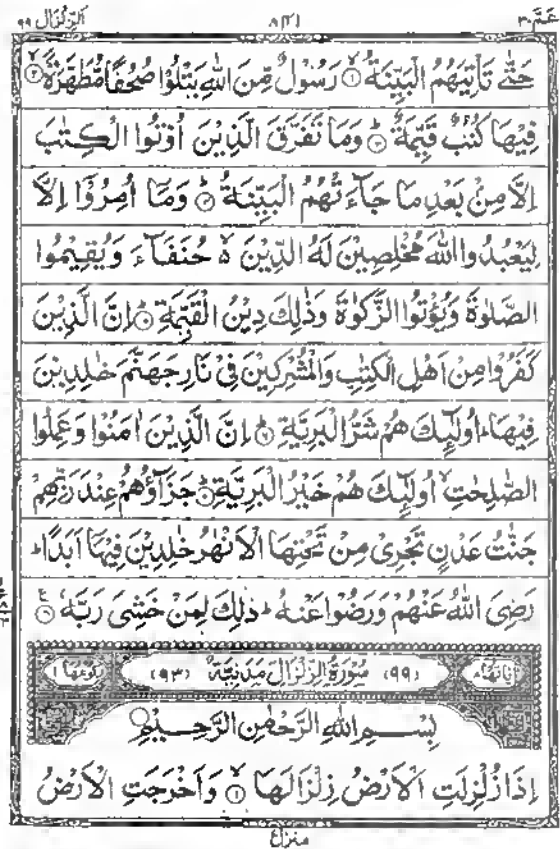 عم ۳۰ ۸۲۱ الزلزال ۹۹
حَتّٰى تَاْتِيَهُمُ الْبَيِّنَةُ ۙ﴿۱﴾ رَسُوْلٌ مِّنَ اللّٰهِ يَتْلُوْا صُحُفًا مُّطَهَّرَةً ۙ﴿۲﴾
فِيْهَا كُتُبٌ قَيِّمَةٌ ؕ﴿۳﴾ وَمَا تَفَرَّقَ الَّذِيْنَ اُوْتُوا الْكِتٰبَ
اِلَّا مِنْۢ بَعْدِ مَا جَآءَتْهُمُ الْبَيِّنَةُ ؕ﴿۴﴾ وَمَاۤ اُمِرُوْۤا اِلَّا
لِيَعْبُدُوا اللّٰهَ مُخْلِصِيْنَ لَهُ الدِّيْنَ ۙ۬ حُنَفَآءَ وَيُقِيْمُوا
الصَّلٰوةَ وَيُؤْتُوا الزَّكٰوةَ وَذٰلِكَ دِيْنُ الْقَيِّمَةِ ؕ﴿۵﴾ اِنَّ الَّذِيْنَ
كَفَرُوْا مِنْ اَهْلِ الْكِتٰبِ وَالْمُشْرِكِيْنَ فِيْ نَارِ جَهَنَّمَ خٰلِدِيْنَ
فِيْهَا ؕ اُولٰٓئِكَ هُمْ شَرُّ الْبَرِيَّةِ ؕ﴿۶﴾ اِنَّ الَّذِيْنَ اٰمَنُوْا وَعَمِلُوا
الصّٰلِحٰتِ ۙ اُولٰٓئِكَ هُمْ خَيْرُ الْبَرِيَّةِ ؕ﴿۷﴾ جَزَآؤُهُمْ عِنْدَ رَبِّهِمْ
جَنّٰتُ عَدْنٍ تَجْرِيْ مِنْ تَحْتِهَا الْاَنْهٰرُ خٰلِدِيْنَ فِيْهَاۤ اَبَدًا ؕ
رَضِيَ اللّٰهُ عَنْهُمْ وَرَضُوْا عَنْهُ ؕ ذٰلِكَ لِمَنْ خَشِيَ رَبَّهٗ ﴿۸﴾
اٰيَاتُهَا ۸ (۹۹) سُوْرَةُ الزِّلْزَالِ مَدَنِيَّةٌ (۹۳) رُكُوْعُهَا ۱
بِسْمِ اللّٰهِ الرَّحْمٰنِ الرَّحِيْمِ
اِذَا زُلْزِلَتِ الْاَرْضُ زِلْزَالَهَا ۙ﴿۱﴾ وَاَخْرَجَتِ الْاَرْضُ